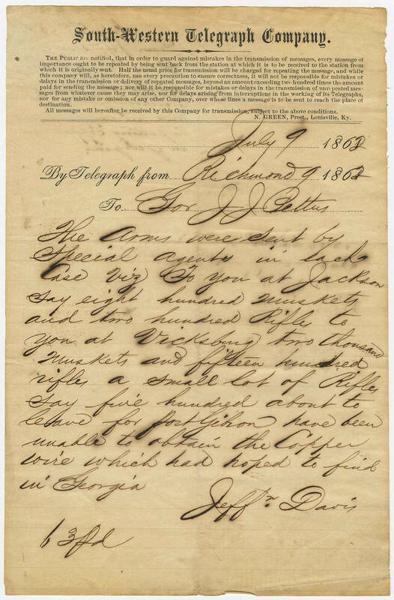 South-Western Telegraph Company.
THE PUBLIC are notified, that in order to guard against mistakes in the transmission of messages, every message of
importance ought to be repeated by being sent back from the station at which it is to be received to the station from
which it is originally sent. Half the usual price for transmission will be charged for repeating the message, and while
this company will, as heretofore, use every precaution to ensure correctness, it will not be responsible for mistakes or
delays in the transmission or delivery of repeated messages, beyond an amount exceeding two hundred times the amount
paid for sending the message; nor will it be responsible for mistakes or delays in the transmission of unrepeated mes-
sages from whatever cause they may arise, nor for delays arising from interruptions in the working of its Telegraphs,
nor for any mistake or omission of any other Company, over whose lines a message is to be sent to reach the place of
destination.
All messages will hereafter be received by this Company for transmission, subject to the above conditions.
N. GREEN, Prest., Louisville, Ky.
July 9 1862
By Telegraph from Richmond 9 1862
To Gov J J Pettus
The Arms were sent by
Special agents in each
Case viz To you at Jackson
say eight hundred muskets
and two hundred Rifle to
you at Vicksburg two thousand
muskets and fifteen hundred
rifle a small lot of Rifle
say five hundred about to
leave for Port Gibson have been
unable to obtain the Copper
wire which had hoped to find
in Georgia
Jeffn Davis
63 Pd